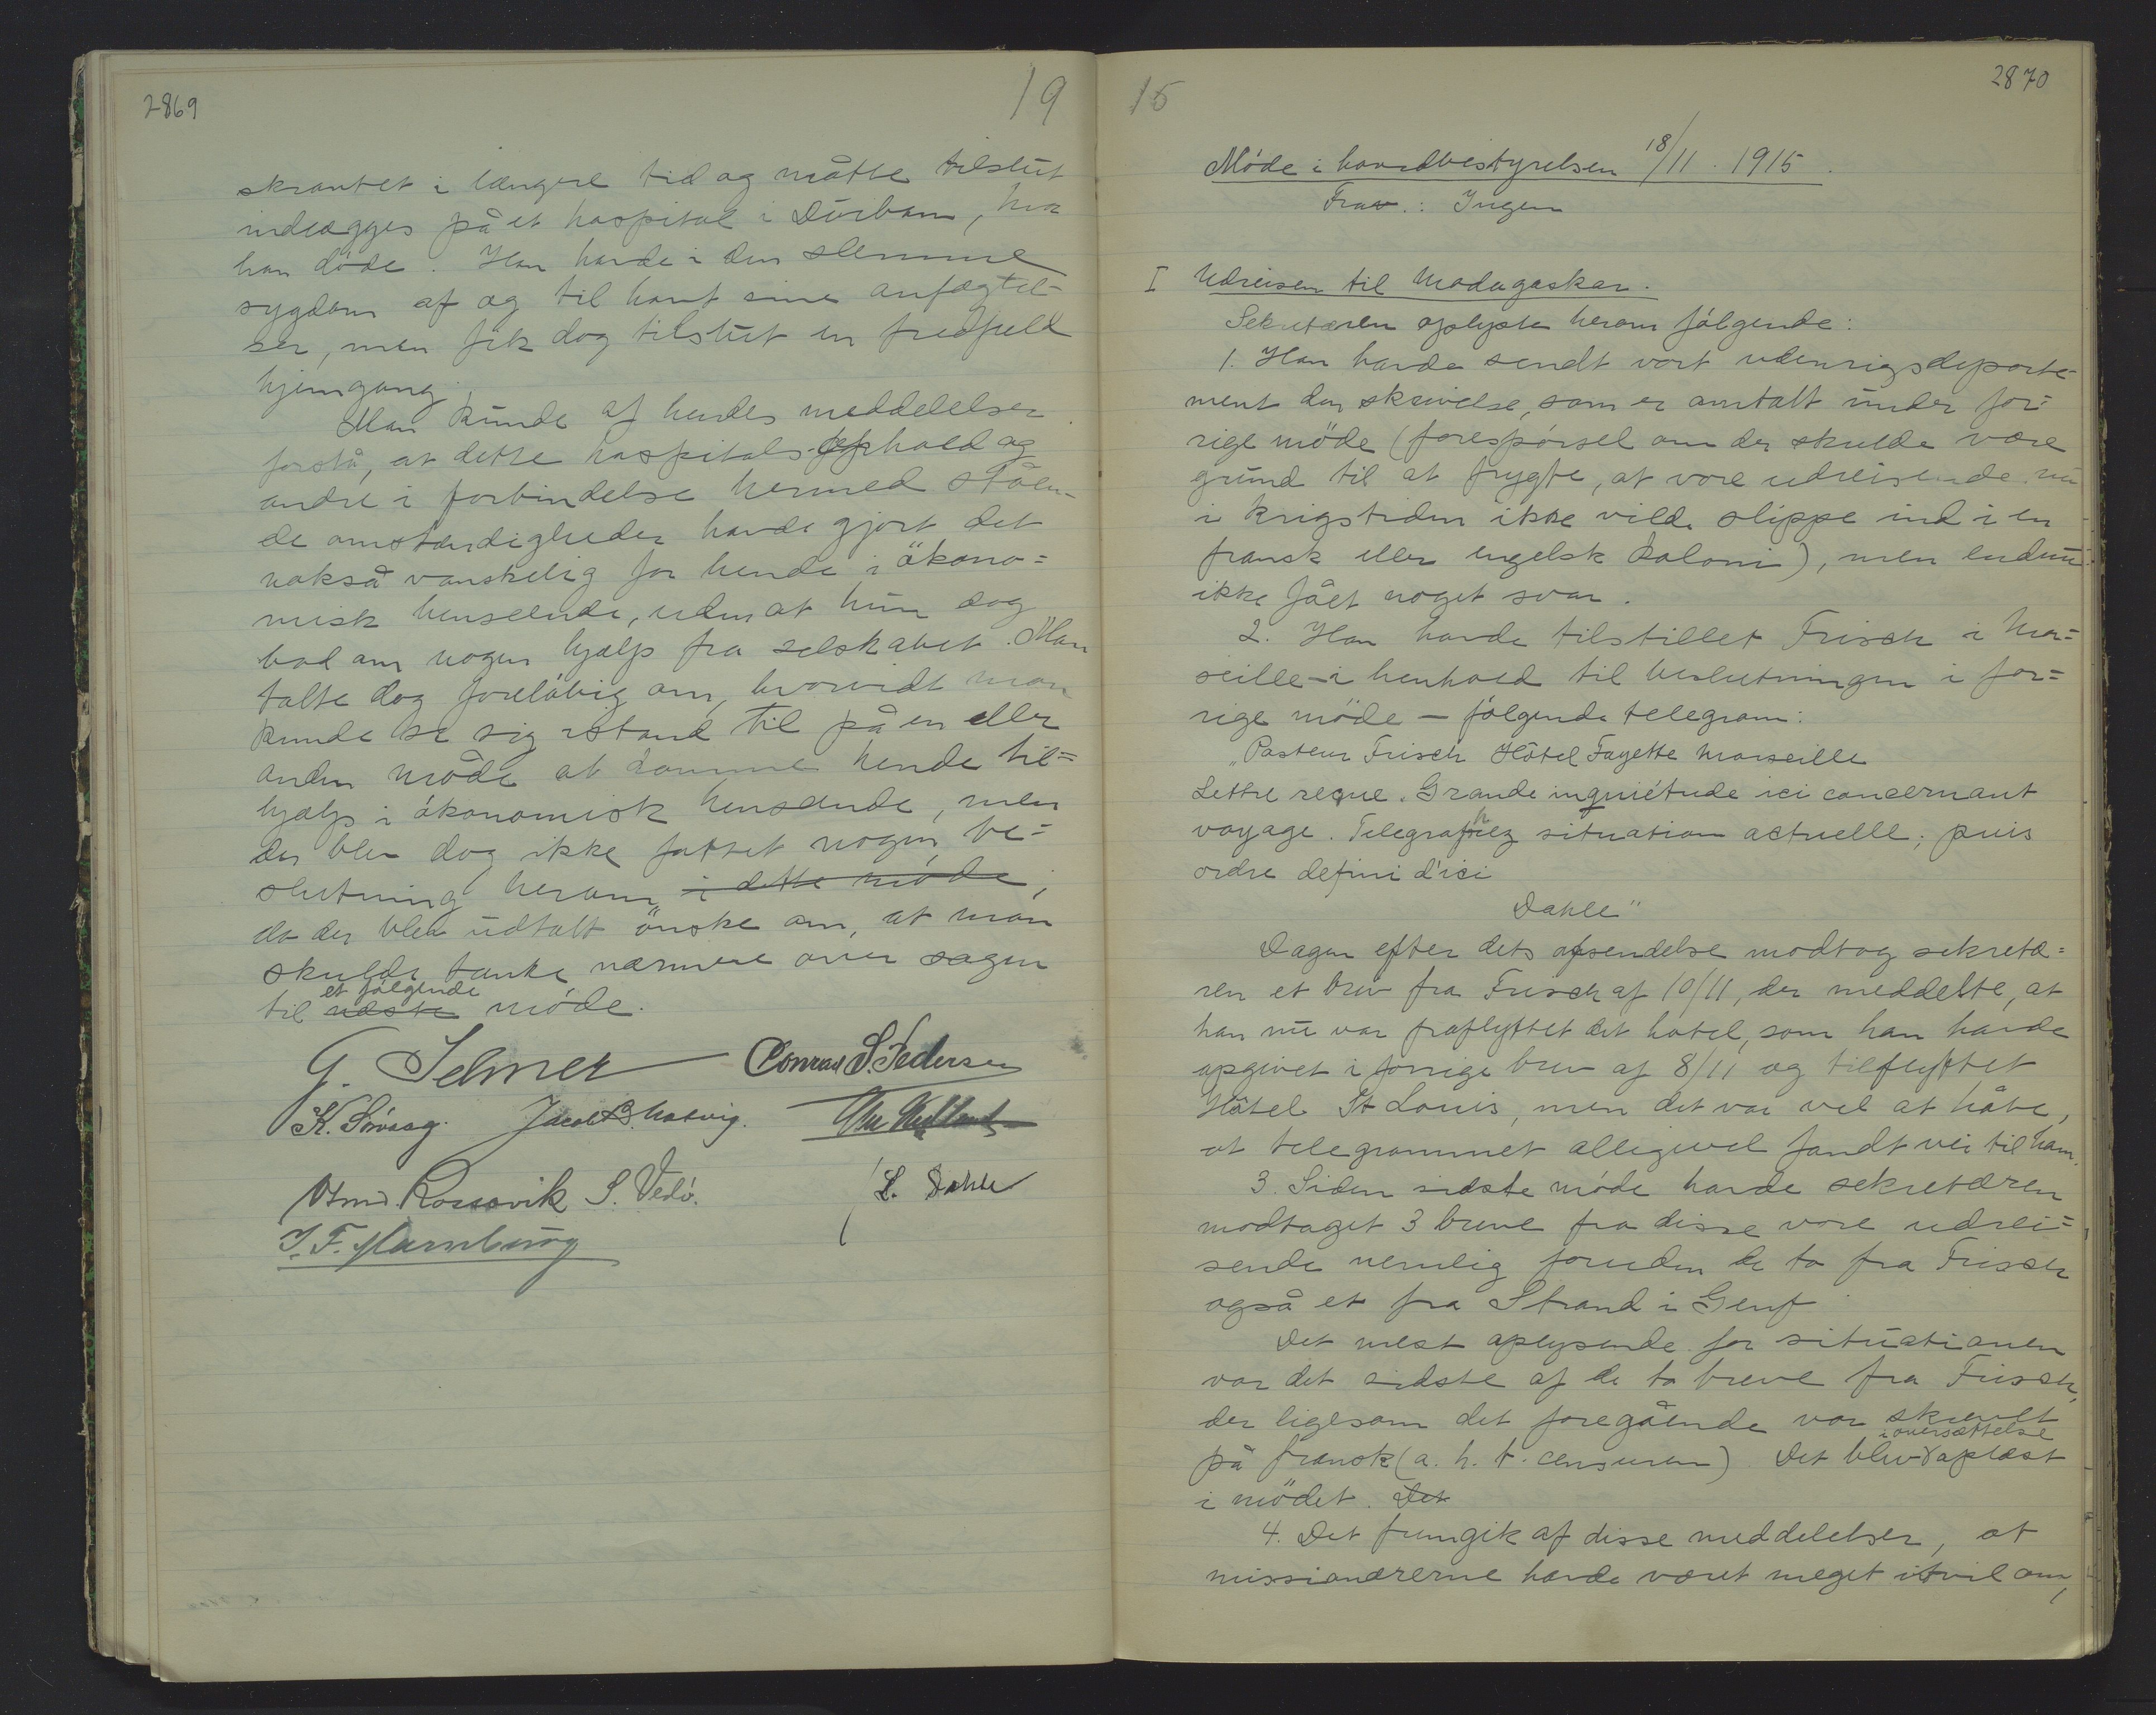 2869
19
skrantet i længere tid og måtte tilslut
indlægges på et hospital i Durban, hvor
han døde. Han havde i den slemme
sygdom af og til havt sine anfægtel-
ser, men fik dog tilslut en fredfuld
hjemgang.
Man kunde af hendes meddelelser
forstå, at dette hospitalsophold og
andre i forbindelse hermed ståen-
de omstændigheder havde gjort det
nokså vanskelig for hende i økono=
misk henseende, uden at hun dog
bad om nogen hjælp fra selskabet. Man
talte dog foreløbig om, hvorvidt man
kunde se sig istand til på en eller
anden måde at komme hende til=
hjælp i økonomisk henseende, men
der blev dog ikke fattet nogen be=
slutning herom i dette møde,
da der blev udtalt ønske om, at man
skulde tænke nærmere over sagen
et følgende
til næste møde.
G. Selmer Conrad S. Pedersen
K. Sövaag. Jacob B. Natvig.
Rossavik S. Vedø. L. Dahle
J. F. Marnburg
15
2870
Møde i hovedbestyrelsen 18/11. 1915.
Frav.: Ingen
I Udreisen til Madagaskar.
Sekretæren oplyste herom følgende:
1. Han havde sendt vort udenrigsdeparte-
ment den skrivelse, som er omtalt under for=
rige møde (forespørsel om der skulde være
grund til at frygte, at vore udreisende nu
i krigstiden ikke vilde slippe ind i en
fransk eller engelsk koloni), men endnu
ikke fået noget svar.
2. Han havde tilstillet Frisch i Mar=
seille - i henhold til beslutningen i for=
rige møde - følgende telegram:
"Pasteur Frisch Hôtel Fayette Marseille
Lettre reçue. Grande inquiétude ici concernant
voyage. Telegraphiez situation actuelle; puis
ordre defini d'ici
Dahle"
Dagen efter dets afsendelse modtog sekretæ=
ren et brev fra Frisch af 10/11, der meddelte, at
han nu var fraflyttet det hotel, som han havde
opgivet i forrige brev af 8/11 og tilflyttet
Hôtel St Louis, men det var vel at håbe,
at telegrammet alligevel fandt vei til ham.
3. Siden sidste møde havde sekretæren
modtaget 3 breve fra disse vore udrei=
sende nemlig foruden de to fra Frisch
også et fra Strand i Genf.
Det mest oplysende for situationen
var det sidste af de to breve fra Frisch,
der ligesom det foregående var skrevet
i oversættelse
på fransk (a. h. t. censuren). Det blev oplæst
i mødet. Det
4. Det fremgik af disse meddelelser, at
missionærerne havde været meget i tvil om,